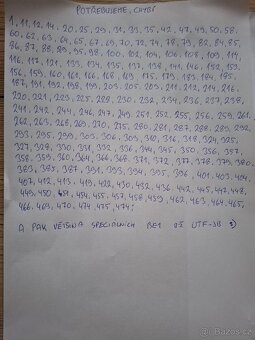 POTŘEBUJEME, CHYBÍ
1, 11, 12, 14, 20, 25, 29, 31, 33, 35, 42, 47, 49, 50, 58,
60, 62, 63, 64, 65, 67, 69, 70, 73, 74, 78, 79, 82, 84, 85,
86, 87, 88, 89, 95, 98, 100, 102, 104, 106, 108, 109, 114,
116, 117, 121, 133, 134, 135, 137, 138, 141, 146, 152, 153,
156, 159, 160, 161, 166, 168, 169, 175, 179, 183, 184, 185,
187, 191, 192, 198, 199, 203, 205, 209, 211, 212, 214, 216,
220, 221, 223, 225, 228, 230, 232, 234, 236, 237, 238,
241, 242, 244, 246, 247, 249, 251, 252, 255, 256, 259, 261,
262, 263, 268, 269, 270, 275, 280, 281, 287, 288, 289, 292,
293, 295, 299, 303, 306, 309, 310, 316, 318, 324, 325,
327, 328, 330, 331, 332, 336, 344, 345, 350, 356, 357,
358, 359, 360, 364, 366, 368, 371, 372, 377, 378, 379, 380,
383, 385, 387, 391, 393, 394, 395, 396, 401, 403, 404,
407, 412, 413, 419, 422, 430, 432, 436, 442, 445, 447, 448,
449, 450, 451, 454, 455, 457, 458, 459, 462, 463, 464, 465,
466, 469, 470, 474, 475, 477;
A PAK VĚTŠINA SPECIÁLNÍCH
Bazoš.cz